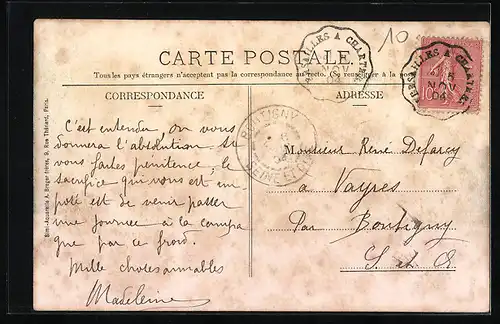 10
CARTE POSTALE
Tous les pays étrangers n'acceptent pas la correspondance au recto. (Se renseigner à la poste
CORRESPONDANCE
ADRESSE
VERSAILLES A CHARTRES
NOV
04
VERSAILLES A CHARTRES
5
NOV
04
BOUTIGNY
SEINE ET
C'est entendu, on vous
donnera l'absolution, si
vous faites pénitence, le
sacrifice qui vous est im-
posé est de venir passer
une journée à la campa
gne par ce froid.
Mille choses aimables
Madeleine
Monsieur René Defarcy
à Vayres
Par Boutigny
S et O